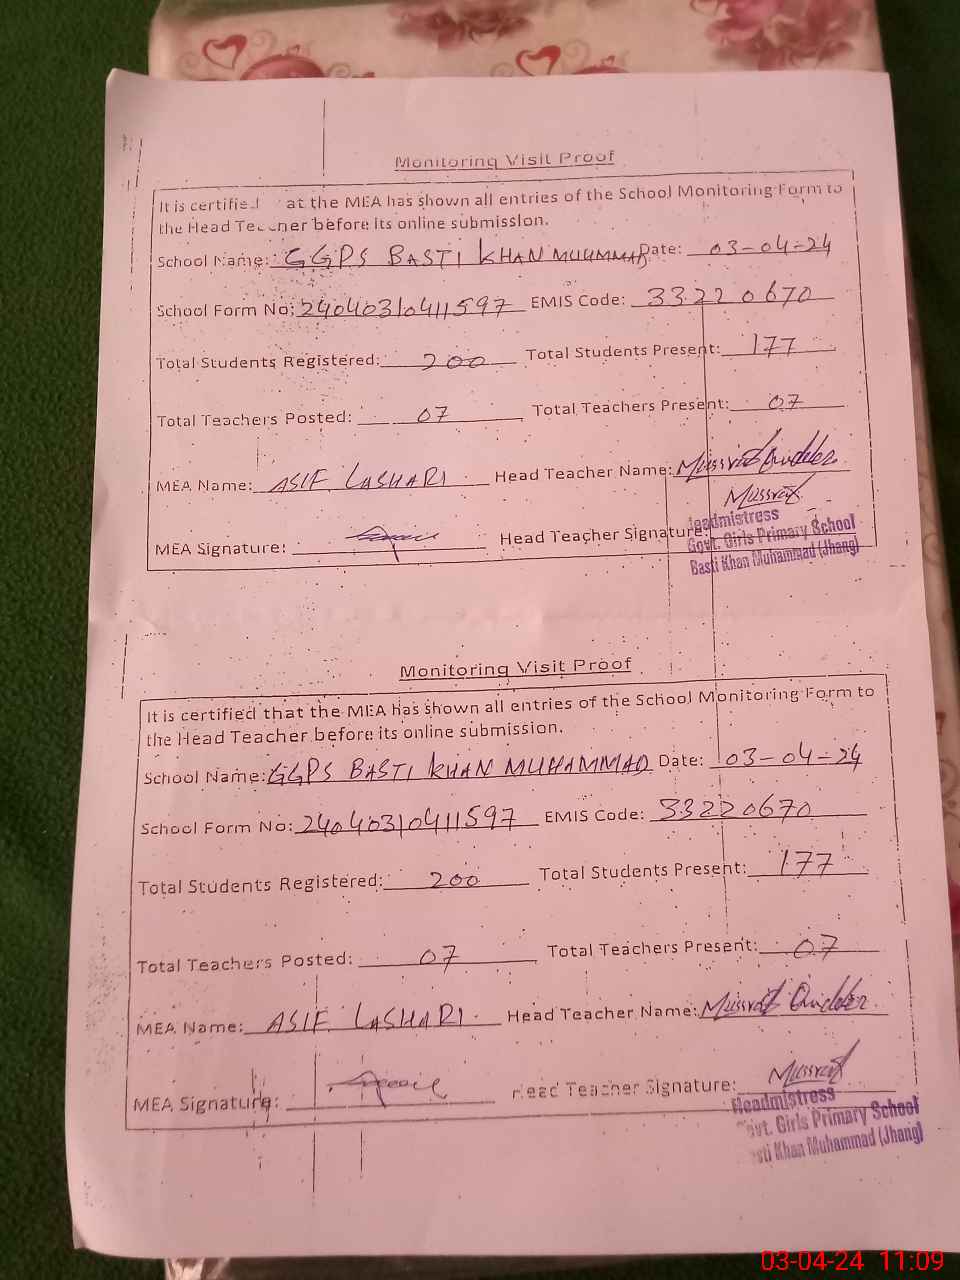 Monitoring Visit Proof
It is certified at the MEA has shown all entries of the School Monitoring Form to
the Head Teacher before its online submission.
School Name: GGPS BASTI KHAN MUHMMAD Date: 03-04-24
School Form No: 24040310411597 EMIS Code: 33220670
Total Students Registered: 200 Total Students Present: 177
Total Teachers Posted: 07 Total Teachers Present: 07
MEA Name: ASIF LASHARI Head Teacher Name: Mussrat
MEA Signature: Head Teacher Signature: Mussrat
Headmistress
Govt. Girls Primary School
Basti Khan Muhammad (Jhang)
Monitoring Visit Proof
It is certified that the MEA has shown all entries of the School Monitoring Form to
the Head Teacher before its online submission.
School Name: GGPS BASTI KHAN MUHAMMAD Date: 03-04-24
School Form No: 24040310411597 EMIS Code: 33220670
Total Students Registered: 200 Total Students Present: 177
Total Teachers Posted: 07 Total Teachers Present: 07
MEA Name: ASIF LASHARI. Head Teacher Name: Mussrat
MEA Signature: Head Teacher Signature: Mussrat
Headmistress
Govt. Girls Primary School
Basti Khan Muhammad (Jhang)
03-04-24 11:09